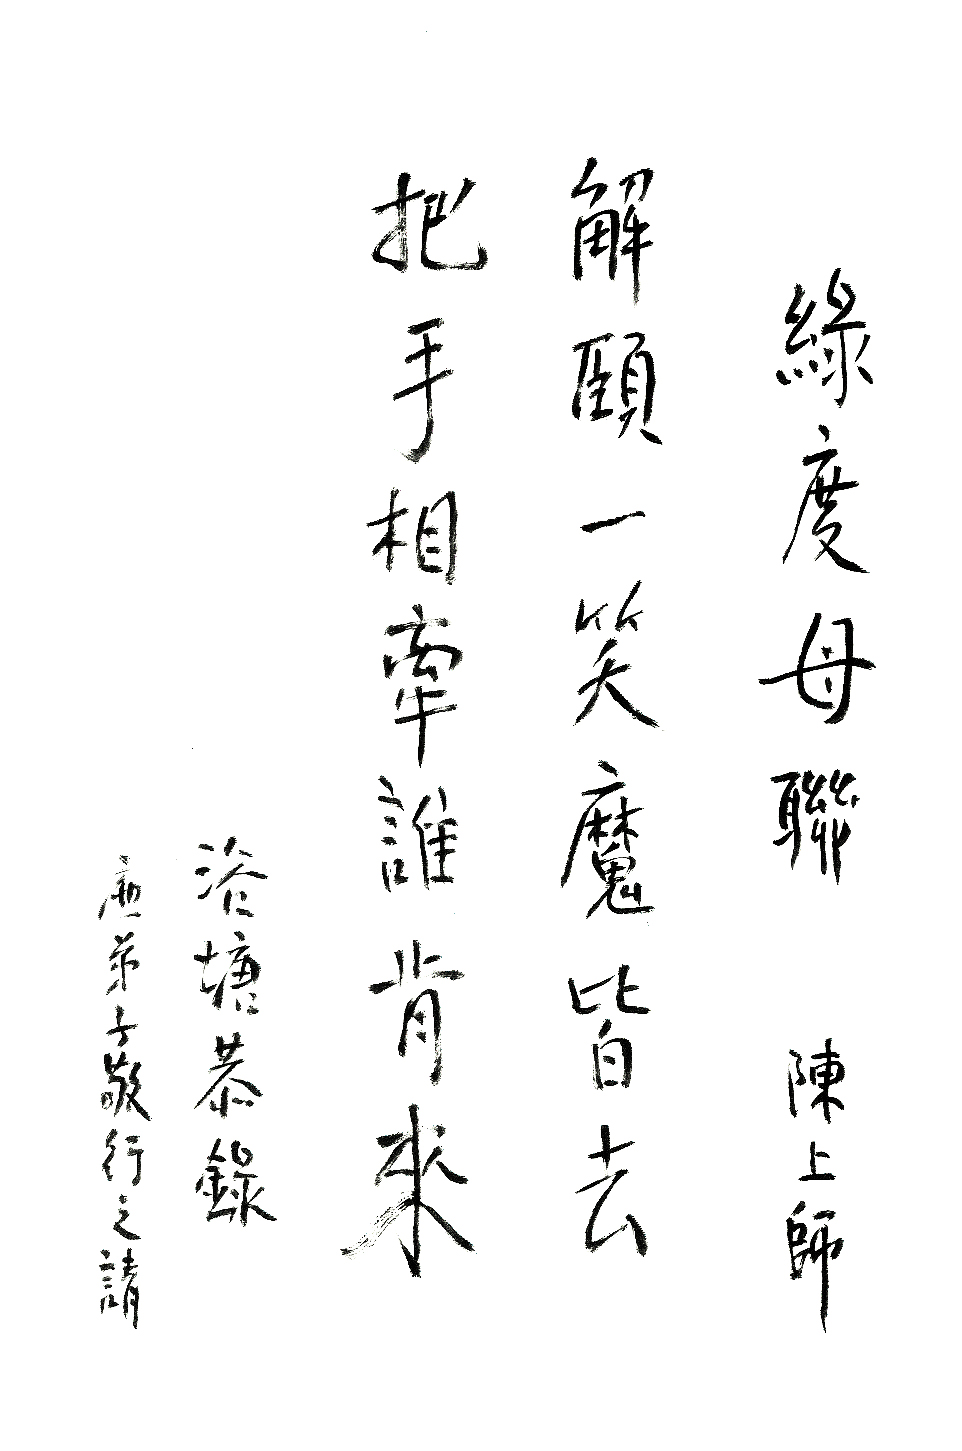 綠度母聯 陳上師
解頤一笑魔皆去
把手相牽誰肯來
浴塘恭錄
應弟子敬行之請